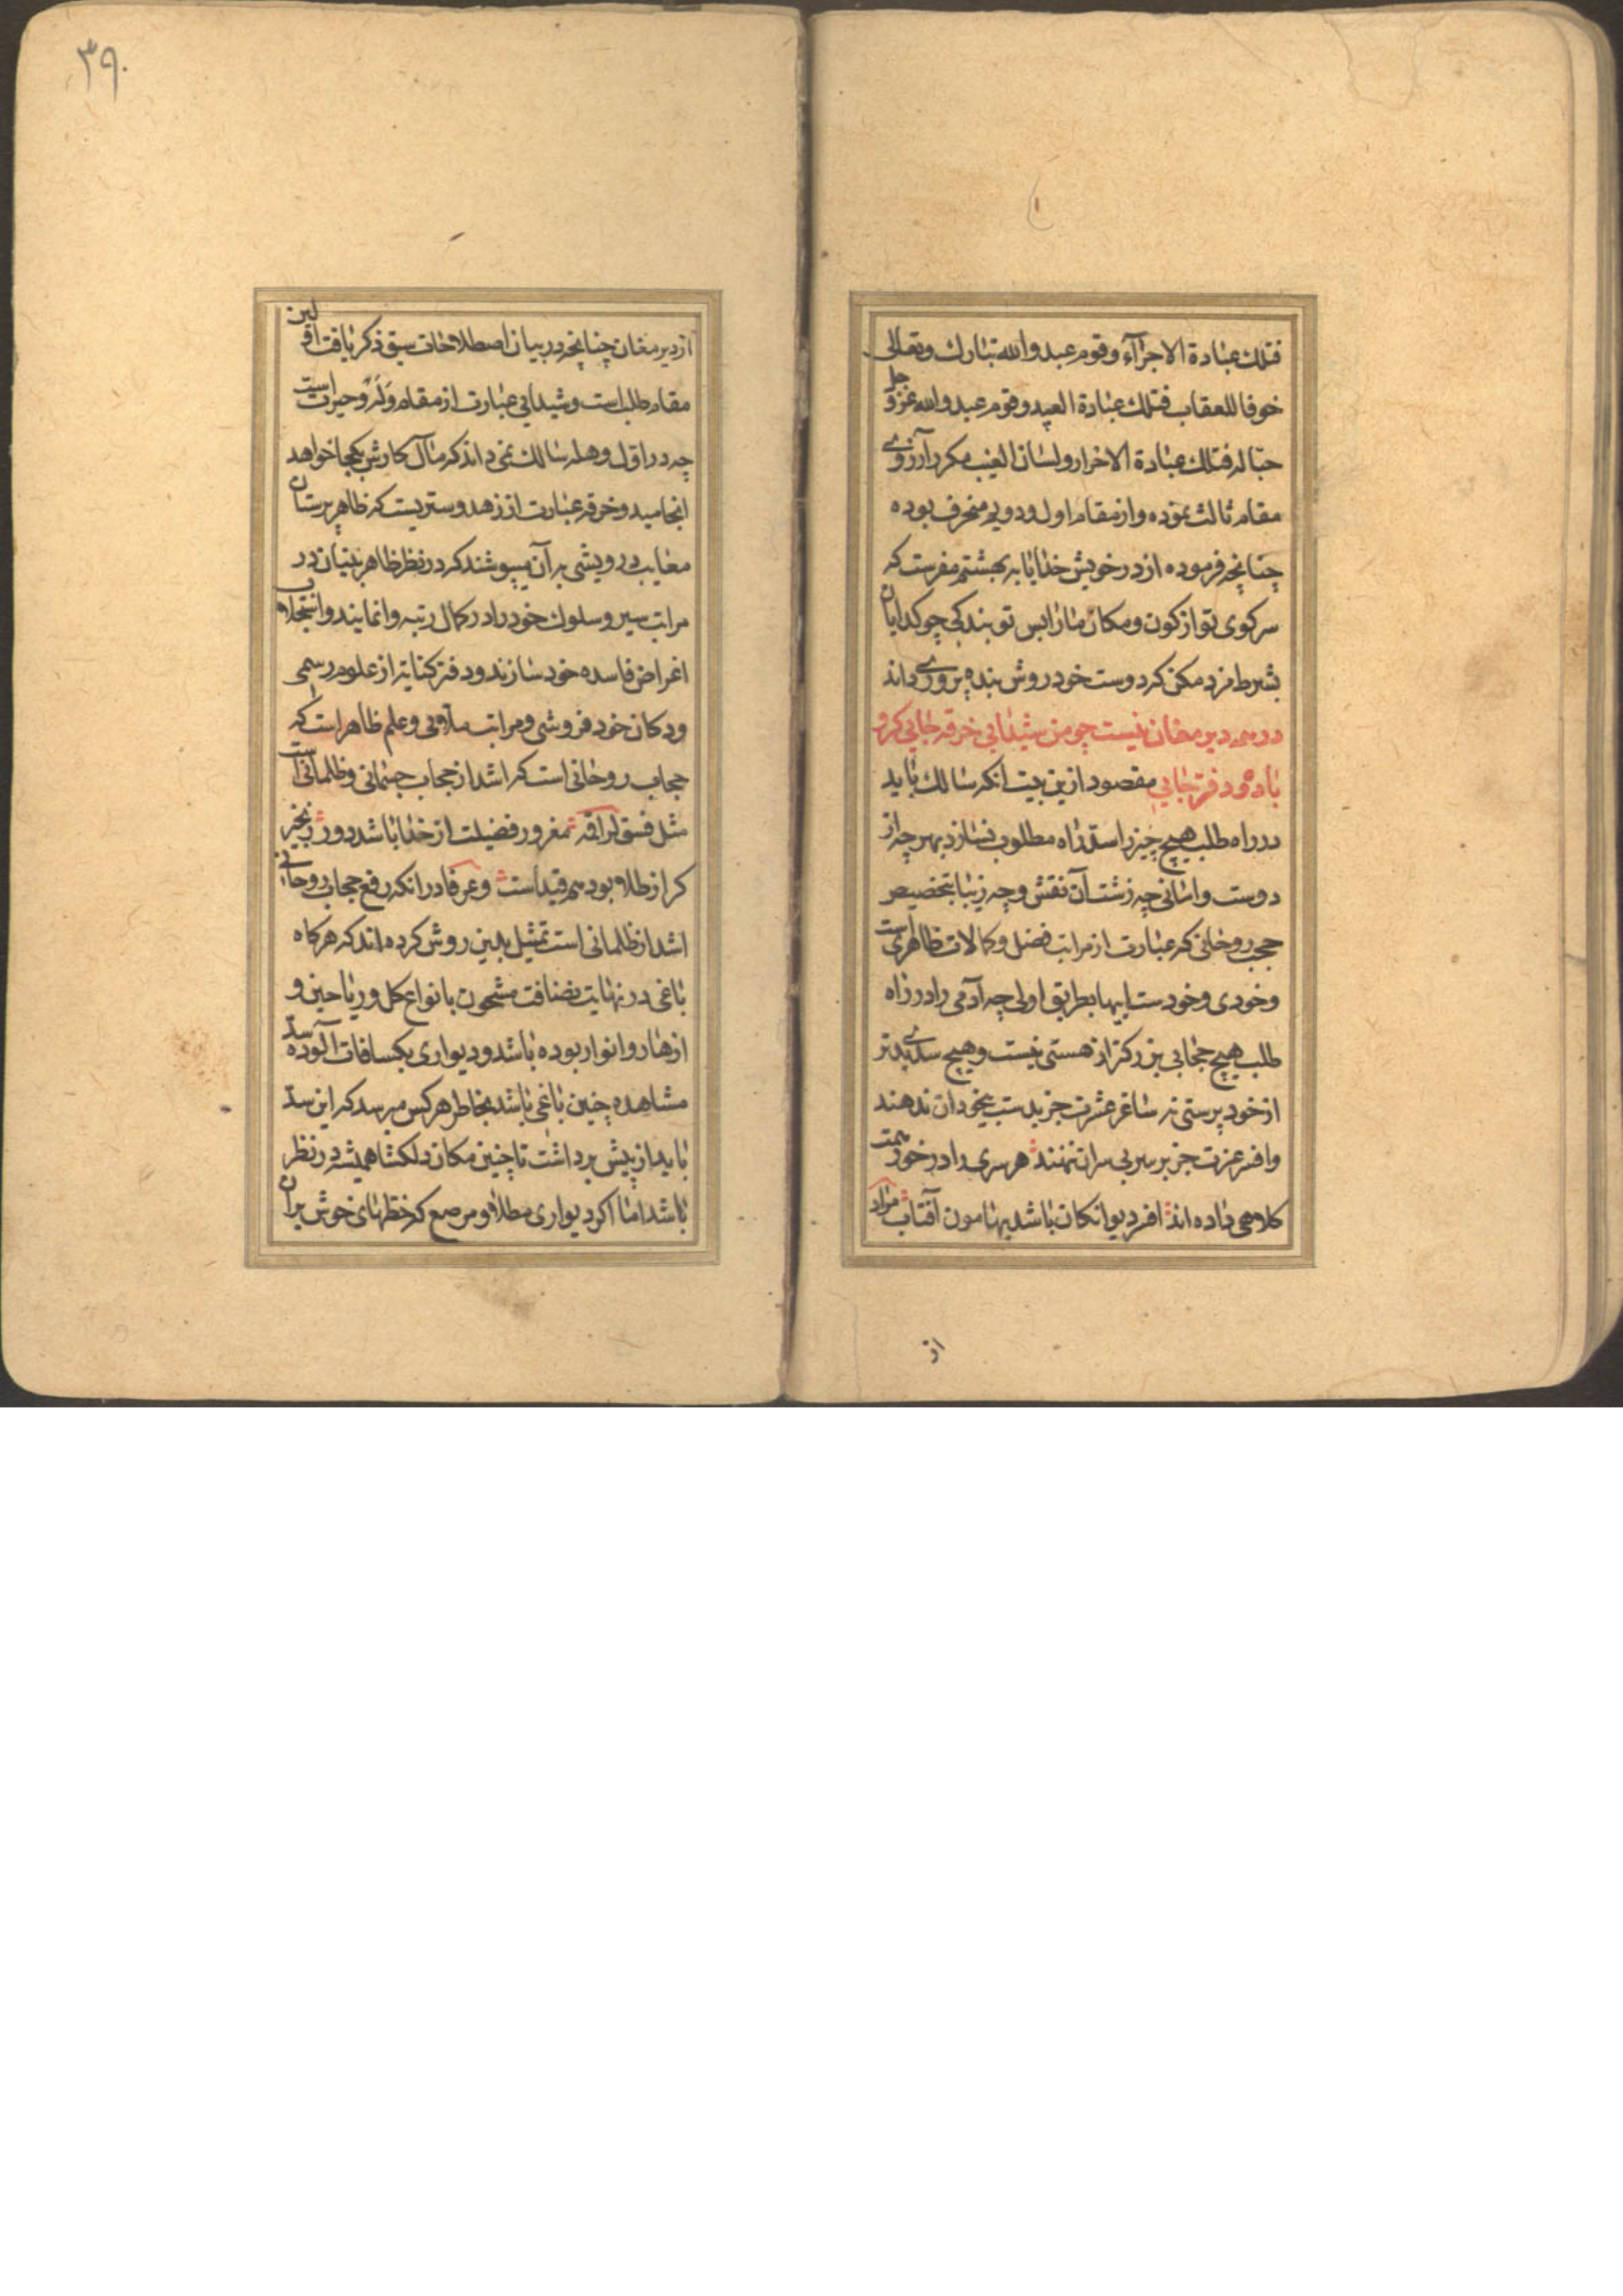 فتلك عبادة الاجرآء وقوم عبدوا الله تبارك وتعالى
خوفا للعقاب فتلك عبادة العبيد وقوم عبدوا الله عز و جل
حبا له فتلك عبادة الاحرار ولسان الغیب مکرر آرزوی
مقام ثالث نموده و از مقام اول و دویم منحرف بوده
چنانچه فرموده از در خویش خدایا به بهشتم مفرست که
سر کوی تو از کون و مکان ما را بس تو بندکی چو کدایان
بشرط مزد مکن که دوست خود روش بنده پروری داند
در همه دیر مغان نیست چو من شیدایی خرقه جایی کرو
باده و دفتر جایی مقصود ازین بیت انکه سالك باید
در راه طلب هیچ چیز را سد راه مطلوب نسازد بهر چه از
دوست وامانی چه زشت آن نقش و چه زیبا بتخصیص
حجب روحانی که عبارت از مراتب فضل و کمالات ظاهریست
و خودی و خودستاییها بطریق اولی چه آدمی را در راه
طلب هیچ حجابی بزرکتر از هستی نیست و هیچ سدی بدتر
از خود پرستی نه ساغر عشرت جز بدست بیخودان ندهند
و افسر عزت جز بر سر بی سران ننهند هر سری را در خور همت
کلاهی داده اند افسر دیوانکان باشد بهامون آفتاب مراد
از
۳۹۰
از دیر مغان چنانچه در بیان اصطلاحات سبق ذکر یافت اولین
مقام طلب است و شیدایی عبارت از مقام وله و حیرت است
چه در اول وهله سالك نمی داند که مآل کارش بکجا خواهد
انجامید و خرقه عبارت از زهد و ستریست که ظاهر پرستان
معایب درویشی به آن میپوشند که در نظر ظاهر بینیان در
مراتب سیر و سلوك خود را در کمال رتبه وانمایند و استجلاب
اغراض فاسده خود سازند و دفتر کنایه از علوم رسمی
و دکان خود فروشی و مراتب ملاویی و علم ظاهر است که
حجاب روحانی است که اشد از حجاب جسمانی و ظلمانی است
مثل فسق لراقمه مغرور فضیلت از خدا باشد دور زنجیر
کر از طلا بود هم قیداست و عرفا در انکه رفع حجاب روحانی
اشد از ظلمانی است تمثیل بدین روش کرده اند که هرکاه
باغی در نهایت نضافت مشحون بانواع کل و ریاحین و
ازهار و انوار بوده باشد و دیواری بکسافات آلوده سد
مشاهده چنین باغی باشد بخاطر هر کس میرسد که این سد
باید از پیش برداشت تا چنین مکان دلکشا همیشه در نظر
باشد اما اکر دیواری مطلا و مرصع که خطهای خوش بران